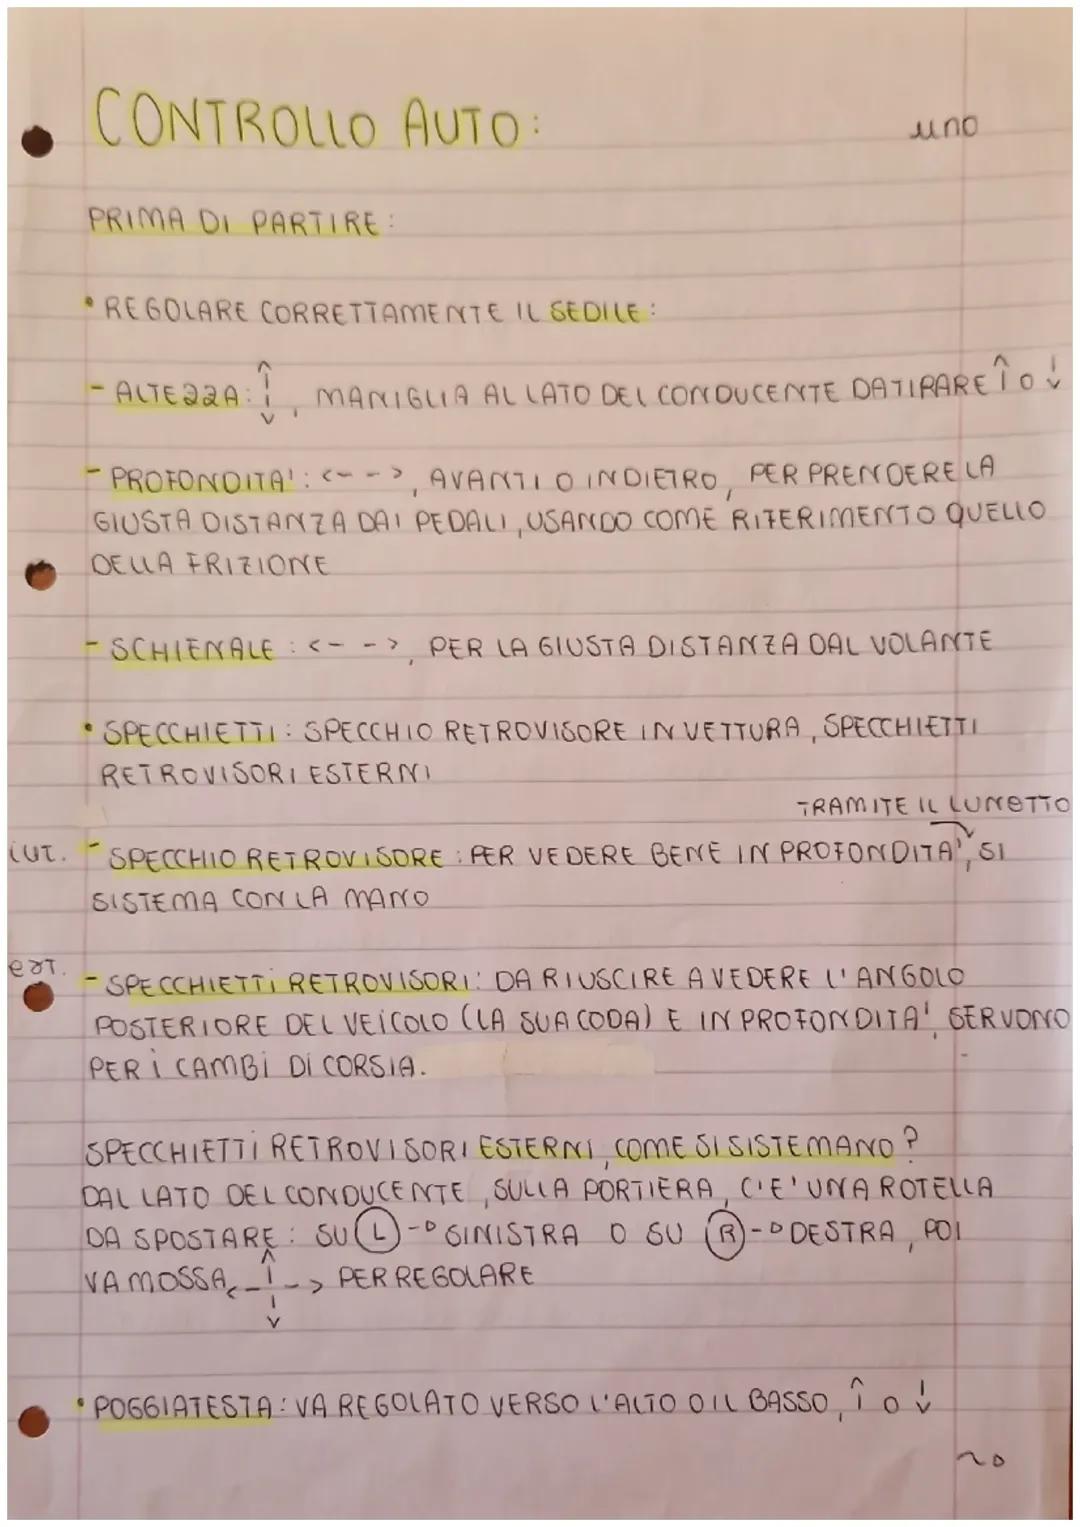 CONTROLLO AUTO:
uno
PRIMA DI PARTIRE:
• REGOLARE CORRETTAMENTE IL SEDILE:
- ALTEZZA: ↕, MANIGLIA AL LATO DEL CONDUCENTE DA TIRARE ↑ O ↓
- PROFONDITA': <-->, AVANTI O INDIETRO, PER PRENDERE LA
GIUSTA DISTANZA DAI PEDALI, USANDO COME RIFERIMENTO QUELLO
DELLA FRIZIONE
- SCHIENALE: <-->, PER LA GIUSTA DISTANZA DAL VOLANTE
• SPECCHIETTI: SPECCHIO RETROVISORE IN VETTURA, SPECCHIETTI
RETROVISORI ESTERNI
TRAMITE IL LUNOTTO
int. - SPECCHIO RETROVISORE: PER VEDERE BENE IN PROFONDITA', SI
SISTEMA CON LA MANO
est.
- SPECCHIETTI RETROVISORI: DA RIUSCIRE A VEDERE L'ANGOLO
POSTERIORE DEL VEICOLO (LA SUA CODA) E IN PROFONDITA', SERVONO
PER I CAMBI DI CORSIA.
SPECCHIETTI RETROVISORI ESTERNI, COME SI SISTEMANO?
DAL LATO DEL CONDUCENTE, SULLA PORTIERA, C'E' UNA ROTELLA
DA SPOSTARE: SU L -> SINISTRA O SU R -> DESTRA, POI
VA MOSSA <-↕-> PER REGOLARE
• POGGIATESTA: VA REGOLATO VERSO L'ALTO O IL BASSO, ↑ O ↓